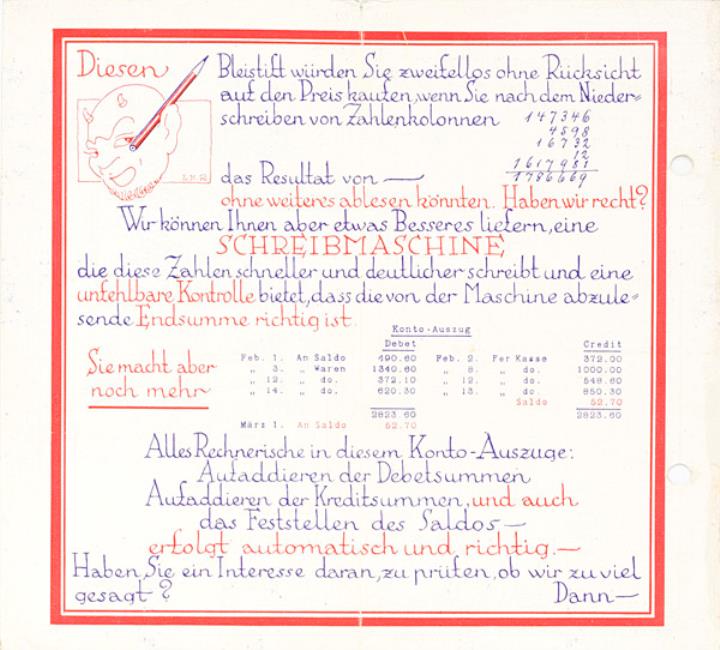 Diesen Bleistift würden Sie zweifellos ohne Rücksicht
auf den Preis kaufen, wenn Sie nach dem Nieder=
schreiben von Zahlenkolonnen 147346
4598
16732
12
1617981
1786669
das Resultat von —
ohne weiteres ablesen könnten. Haben wir recht?
Wir können Ihnen aber etwas Besseres liefern, eine
SCHREIBMASCHINE
die diese Zahlen schneller und deutlicher schreibt und eine
unfehlbare Kontrolle bietet, dass die von der Maschine abzule=
sende Endsumme richtig ist.
Sie macht aber
noch mehr
Konto-Auszug
Debet Credit
Feb. 1. An Saldo 490.60 Feb. 2. Per Kasse 372.00
„ 3. „ Waren 1340.60 „ 8. „ do. 1000.00
„ 12. „ do. 372.10 „ 12. „ do. 548.60
„ 14. „ do. 620.30 „ 13. „ do. 850.30
Saldo 52.70
2823.60 2823.60
März 1. An Saldo 52.70
Alles Rechnerische in diesem Konto-Auszuge:
Aufaddieren der Debetsummen
Aufaddieren der Kreditsummen, und auch
das Feststellen des Saldos —
erfolgt automatisch und richtig. —
Haben Sie ein Interesse daran, zu prüfen, ob wir zu viel
gesagt? Dann —